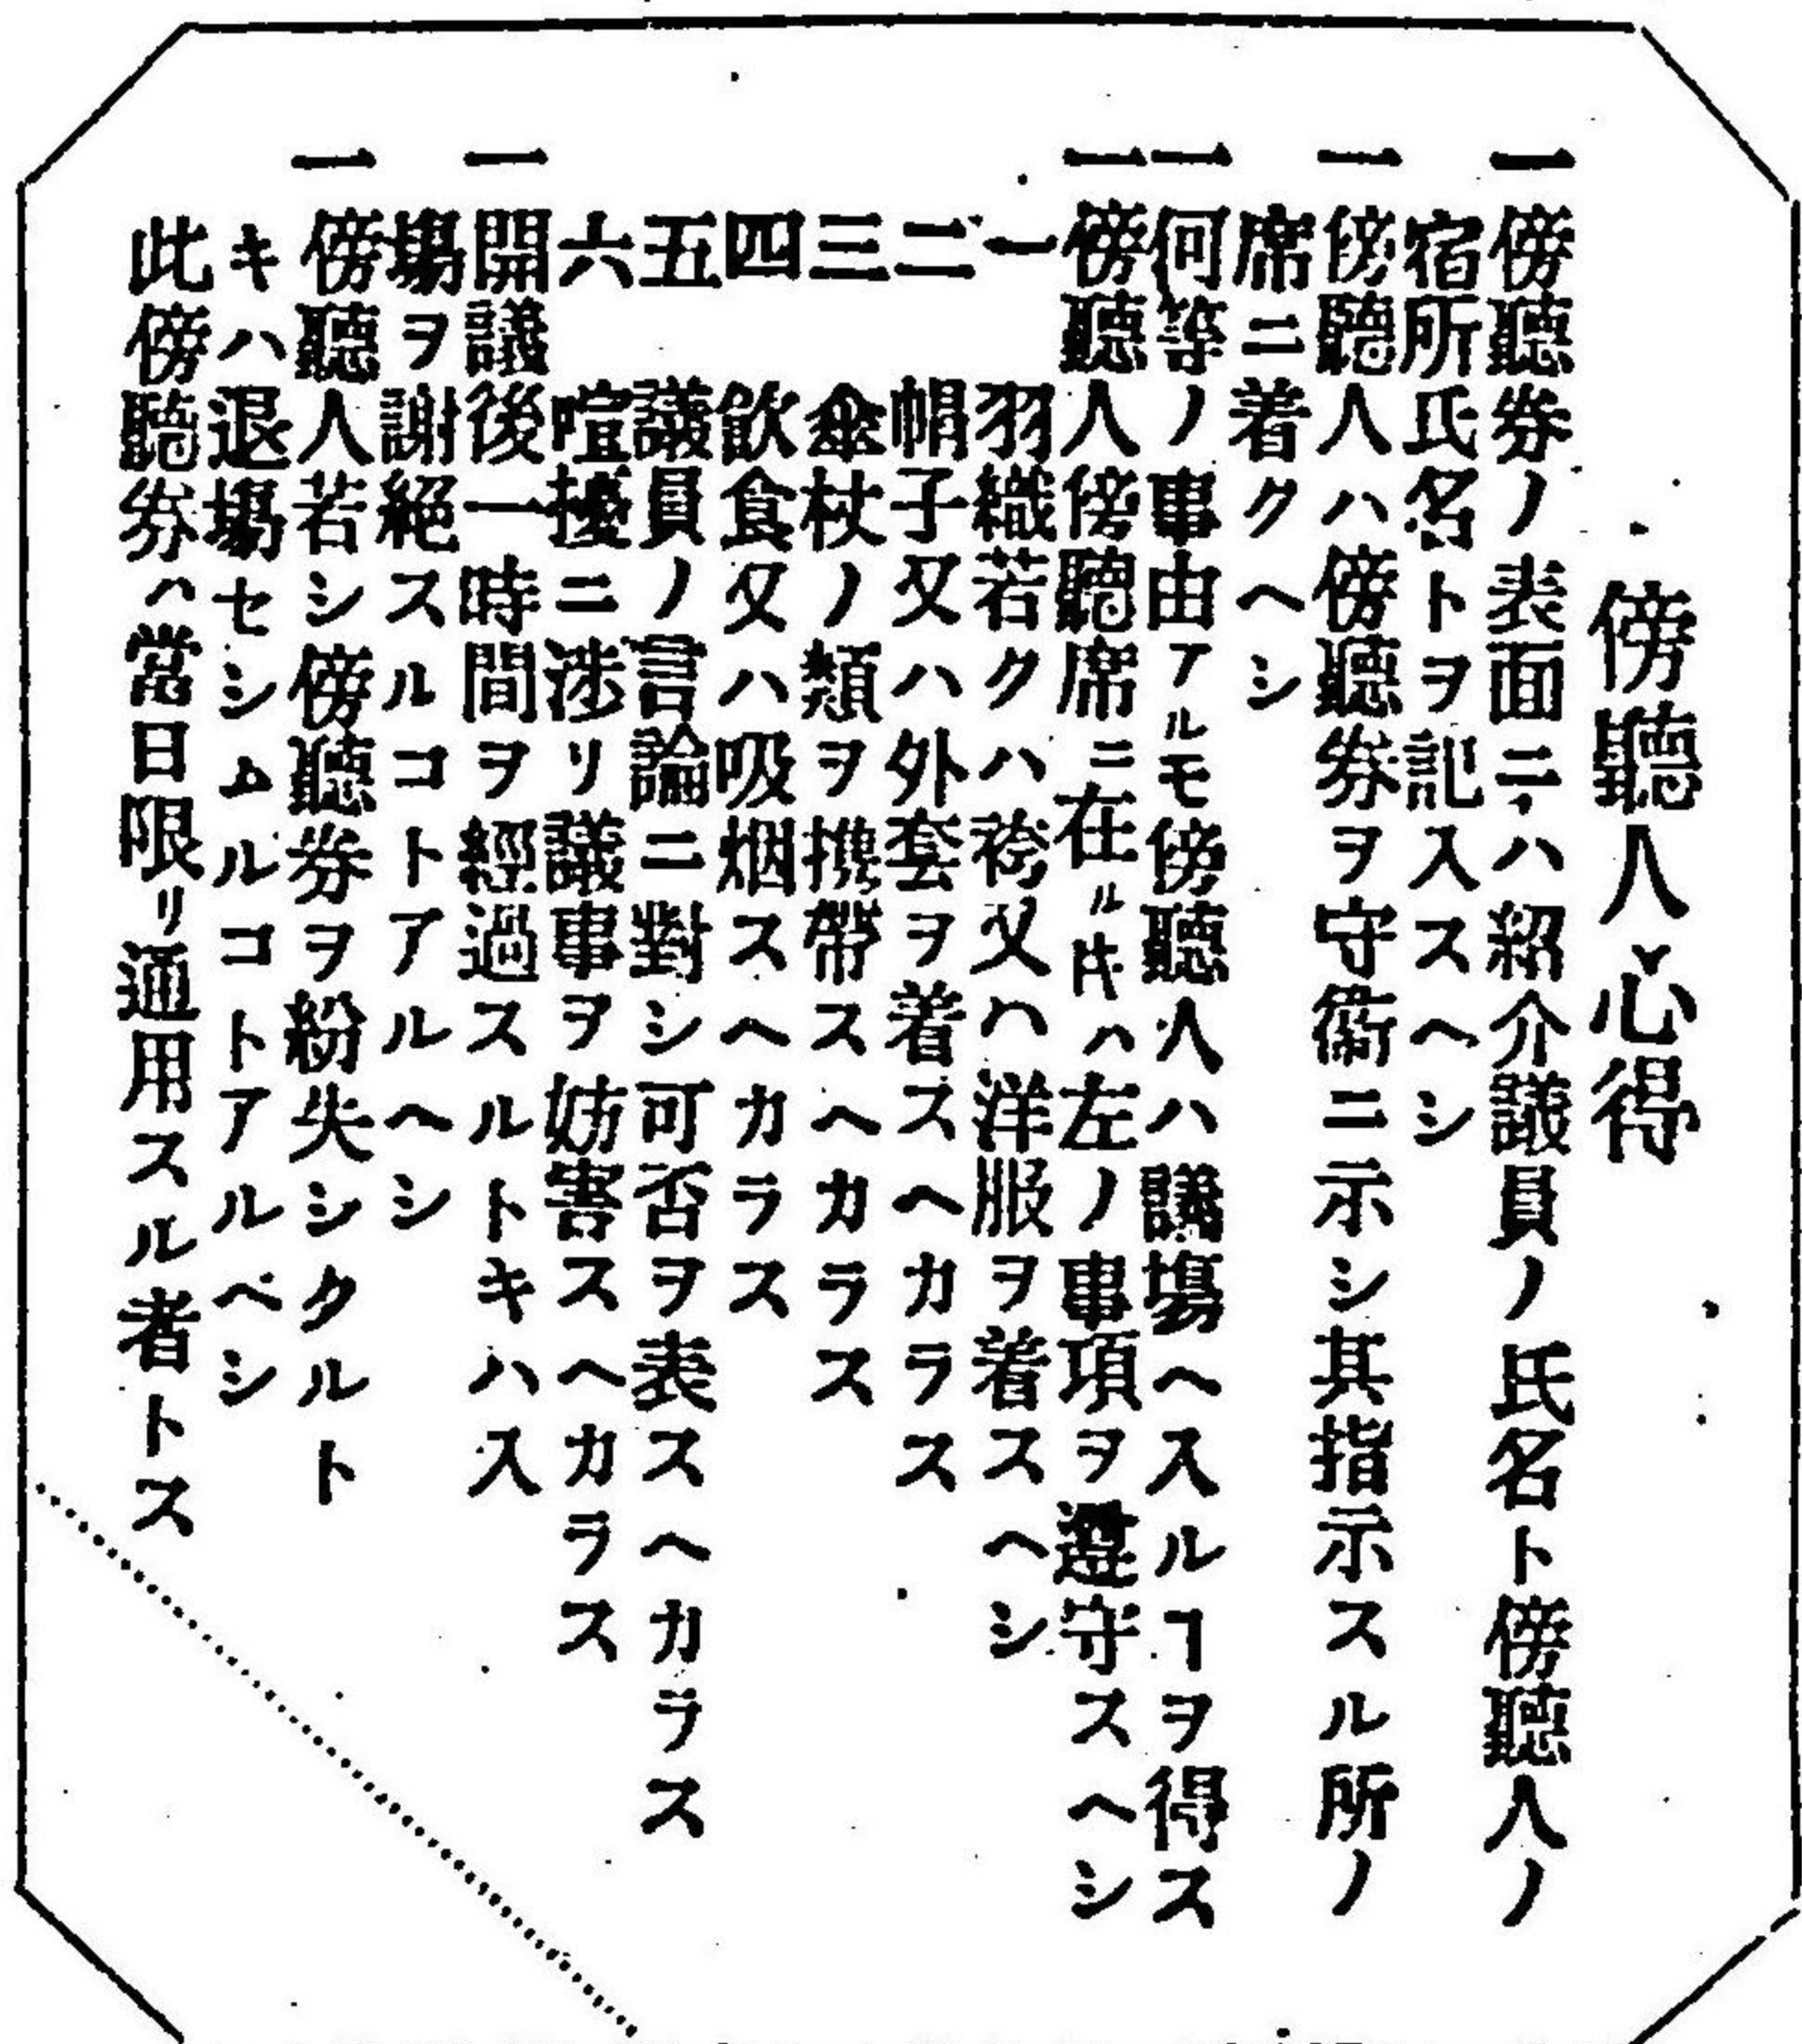 傍聽人心得
一 傍聽券ノ表面ニハ紹介議員ノ氏名ト傍聽人ノ
宿所氏名トヲ記入スヘシ
一 傍聽人ハ傍聽券ヲ守衞ニ示シ其指示スル所ノ
席ニ着クヘシ
一 何等ノ事由アルモ傍聽人ハ議塲ヘ入ルヿヲ得ス
一 傍聽人傍聽席ニ在ル𪜈ハ左ノ事項ヲ遵守スヘシ
一 羽織若クハ袴又ハ洋服ヲ着スヘシ
二 帽子又ハ外套ヲ着スヘカラス
三 傘杖ノ類ヲ携帶スヘカラス
四 飮食又ハ吸烟スヘカラス
五 議員ノ言論ニ對シ可否ヲ表スヘカラス
六 喧擾ニ涉リ議事ヲ妨害スヘカラス
一 開議後一時間ヲ經過スルトキハ入
塲ヲ謝絕スルコトアルヘシ
一 傍聽人若シ傍聽券ヲ紛失シタルト
キハ退塲セシムルコトアルベシ
此傍聽券ハ當日限リ通用スル者トス